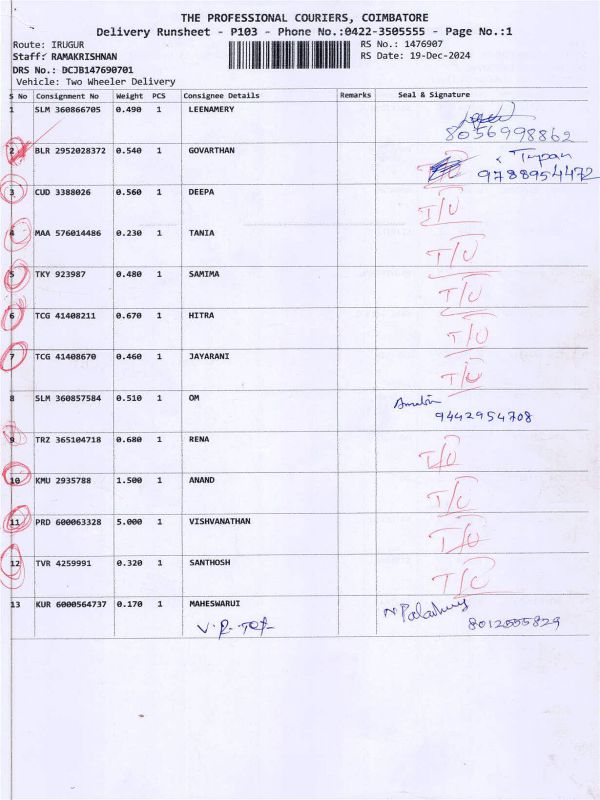 THE PROFESSIONAL COURIERS, COIMBATORE
Delivery Runsheet - P103 - Phone No.:0422-3505555 - Page No.:1
Route: IRUGUR
RS No.: 1476907
Staff: RAMAKRISHNAN
RS Date: 19-Dec-2024
DRS No.: DCJB147690701
Vehicle: Two Wheeler Delivery
S No Consignment No Weight PCS Consignee Details Remarks Seal & Signature
1 SLM 360866705 0.490 1 LEENAMERY
8056998862
2 BLR 2952028372 0.540 1 GOVARTHAN
T/U
9788954472
3 CUD 3388026 0.560 1 DEEPA T/U
4 MAA 576014486 0.230 1 TANIA T/U
5 TKY 923987 0.480 1 SAMIMA T/U
6 TCG 41408211 0.670 1 HITRA T/U
7 TCG 41408670 0.460 1 JAYARANI T/U
8 SLM 360857584 0.510 1 OM
9442954708
9 TRZ 365104718 0.680 1 RENA T/U
10 KMU 2935788 1.500 1 ANAND T/U
11 PRD 600063328 5.000 1 VISHVANATHAN T/U
12 TVR 4259991 0.320 1 SANTHOSH T/U
13 KUR 6000564737 0.170 1 MAHESWARUI
8012555829